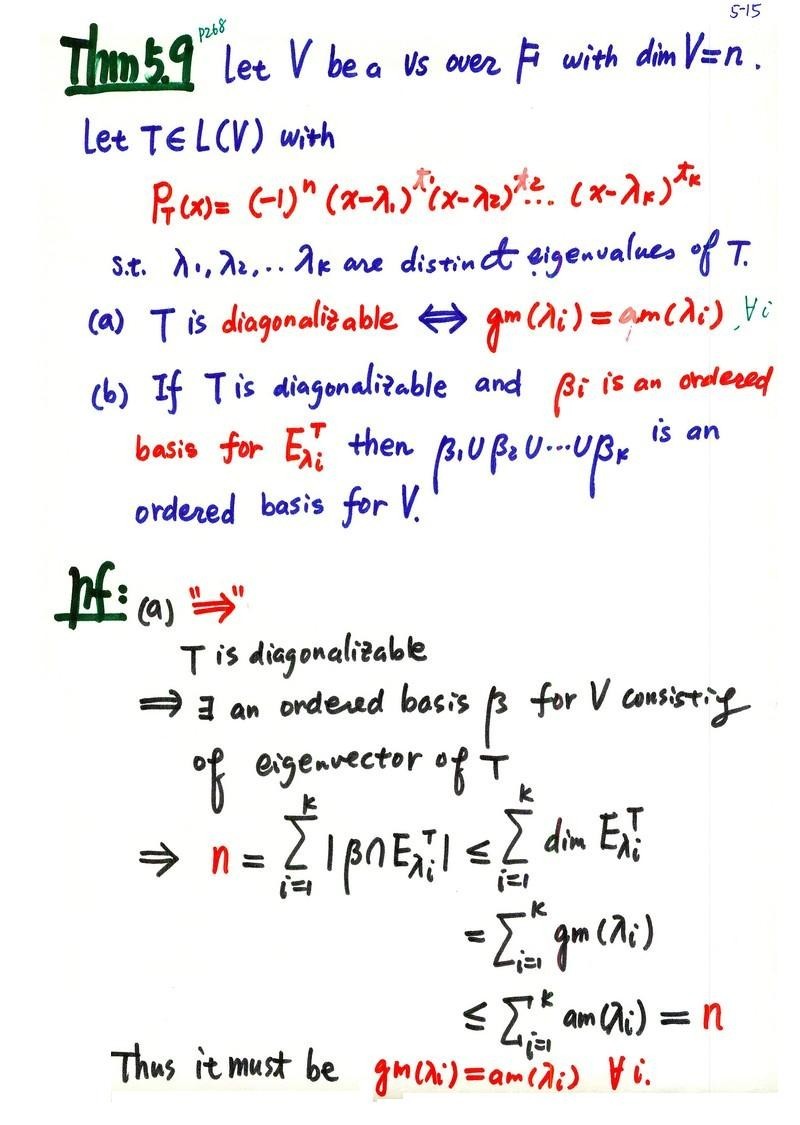 5-15
Thm 5.9 p268 Let V be a vs over F with dim V=n.
Let T∈L(V) with
P_T(x)= (-1)^n (x-λ₁)^t₁ (x-λ₂)^t₂ ... (x-λ_k)^t_k
s.t. λ₁, λ₂, .. λ_k are distinct eigenvalues of T.
(a) T is diagonalizable ⇔ gm(λ_i) = am(λ_i), ∀i
(b) If T is diagonalizable and β_i is an ordered
basis for E_{λ_i}^T then β₁∪β₂∪···∪β_k is an
ordered basis for V.
pf: (a) "⇒"
T is diagonalizable
⇒ ∃ an ordered basis β for V consistig
of eigenvector of T
⇒ n = ∑_{i=1}^k |β∩E_{λ_i}^T| ≤ ∑_{i=1}^k dim E_{λ_i}^T
= ∑_{i=1}^k gm(λ_i)
≤ ∑_{i=1}^k am(λ_i) = n
Thus it must be gm(λ_i)=am(λ_i) ∀i.